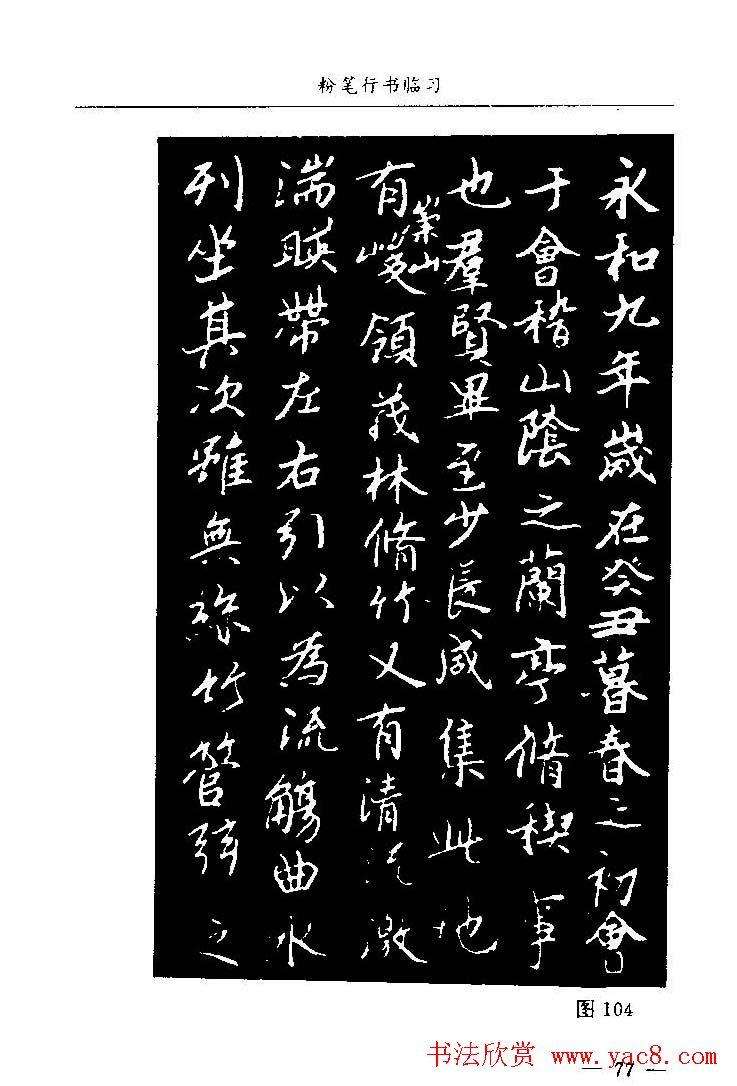 粉笔行书临习
永和九年歲在癸丑暮春之初會
于會稽山陰之蘭亭脩稧事
也羣賢畢至少長咸集此地
有崇山峻領茂林脩竹又有清流激
湍暎帶左右引以為流觴曲水
列坐其次雖無絲竹管弦之
图 104
— 77 —
书法欣赏 www.yac8.com